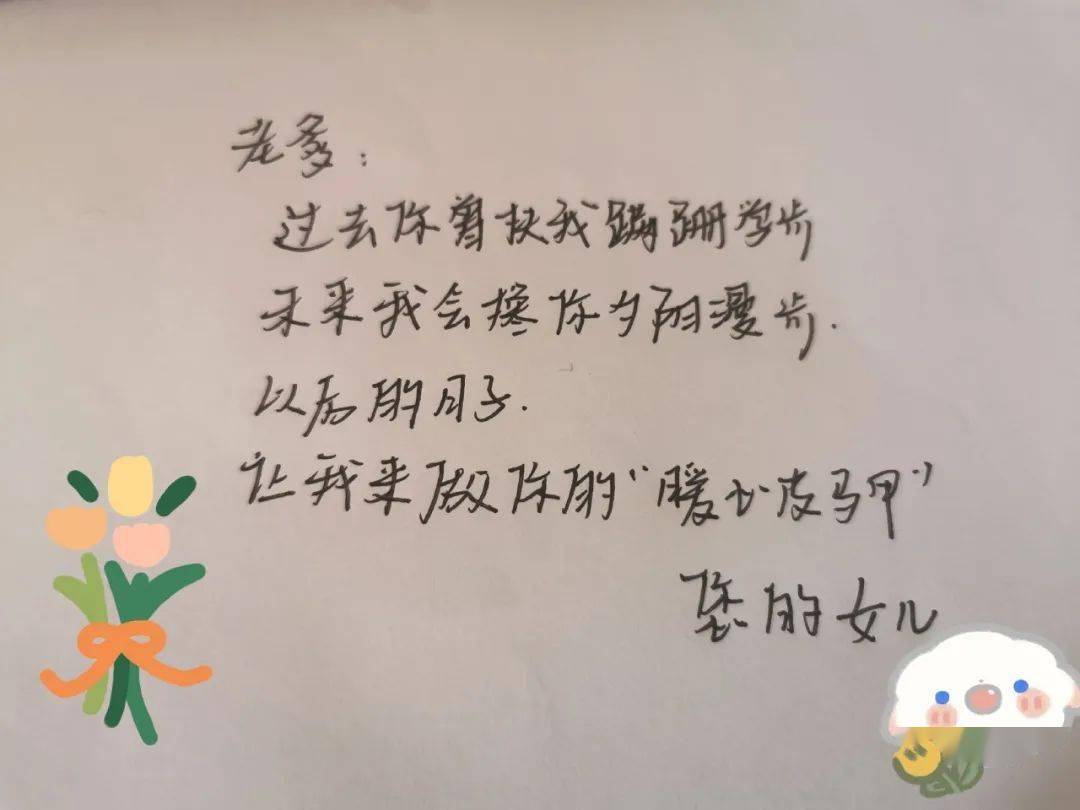 老爹：
过去你曾扶我蹒跚学步
未来我会搀你夕阳漫步.
以后的日子.
让我来做你的“暖心皮马甲”
您的女儿